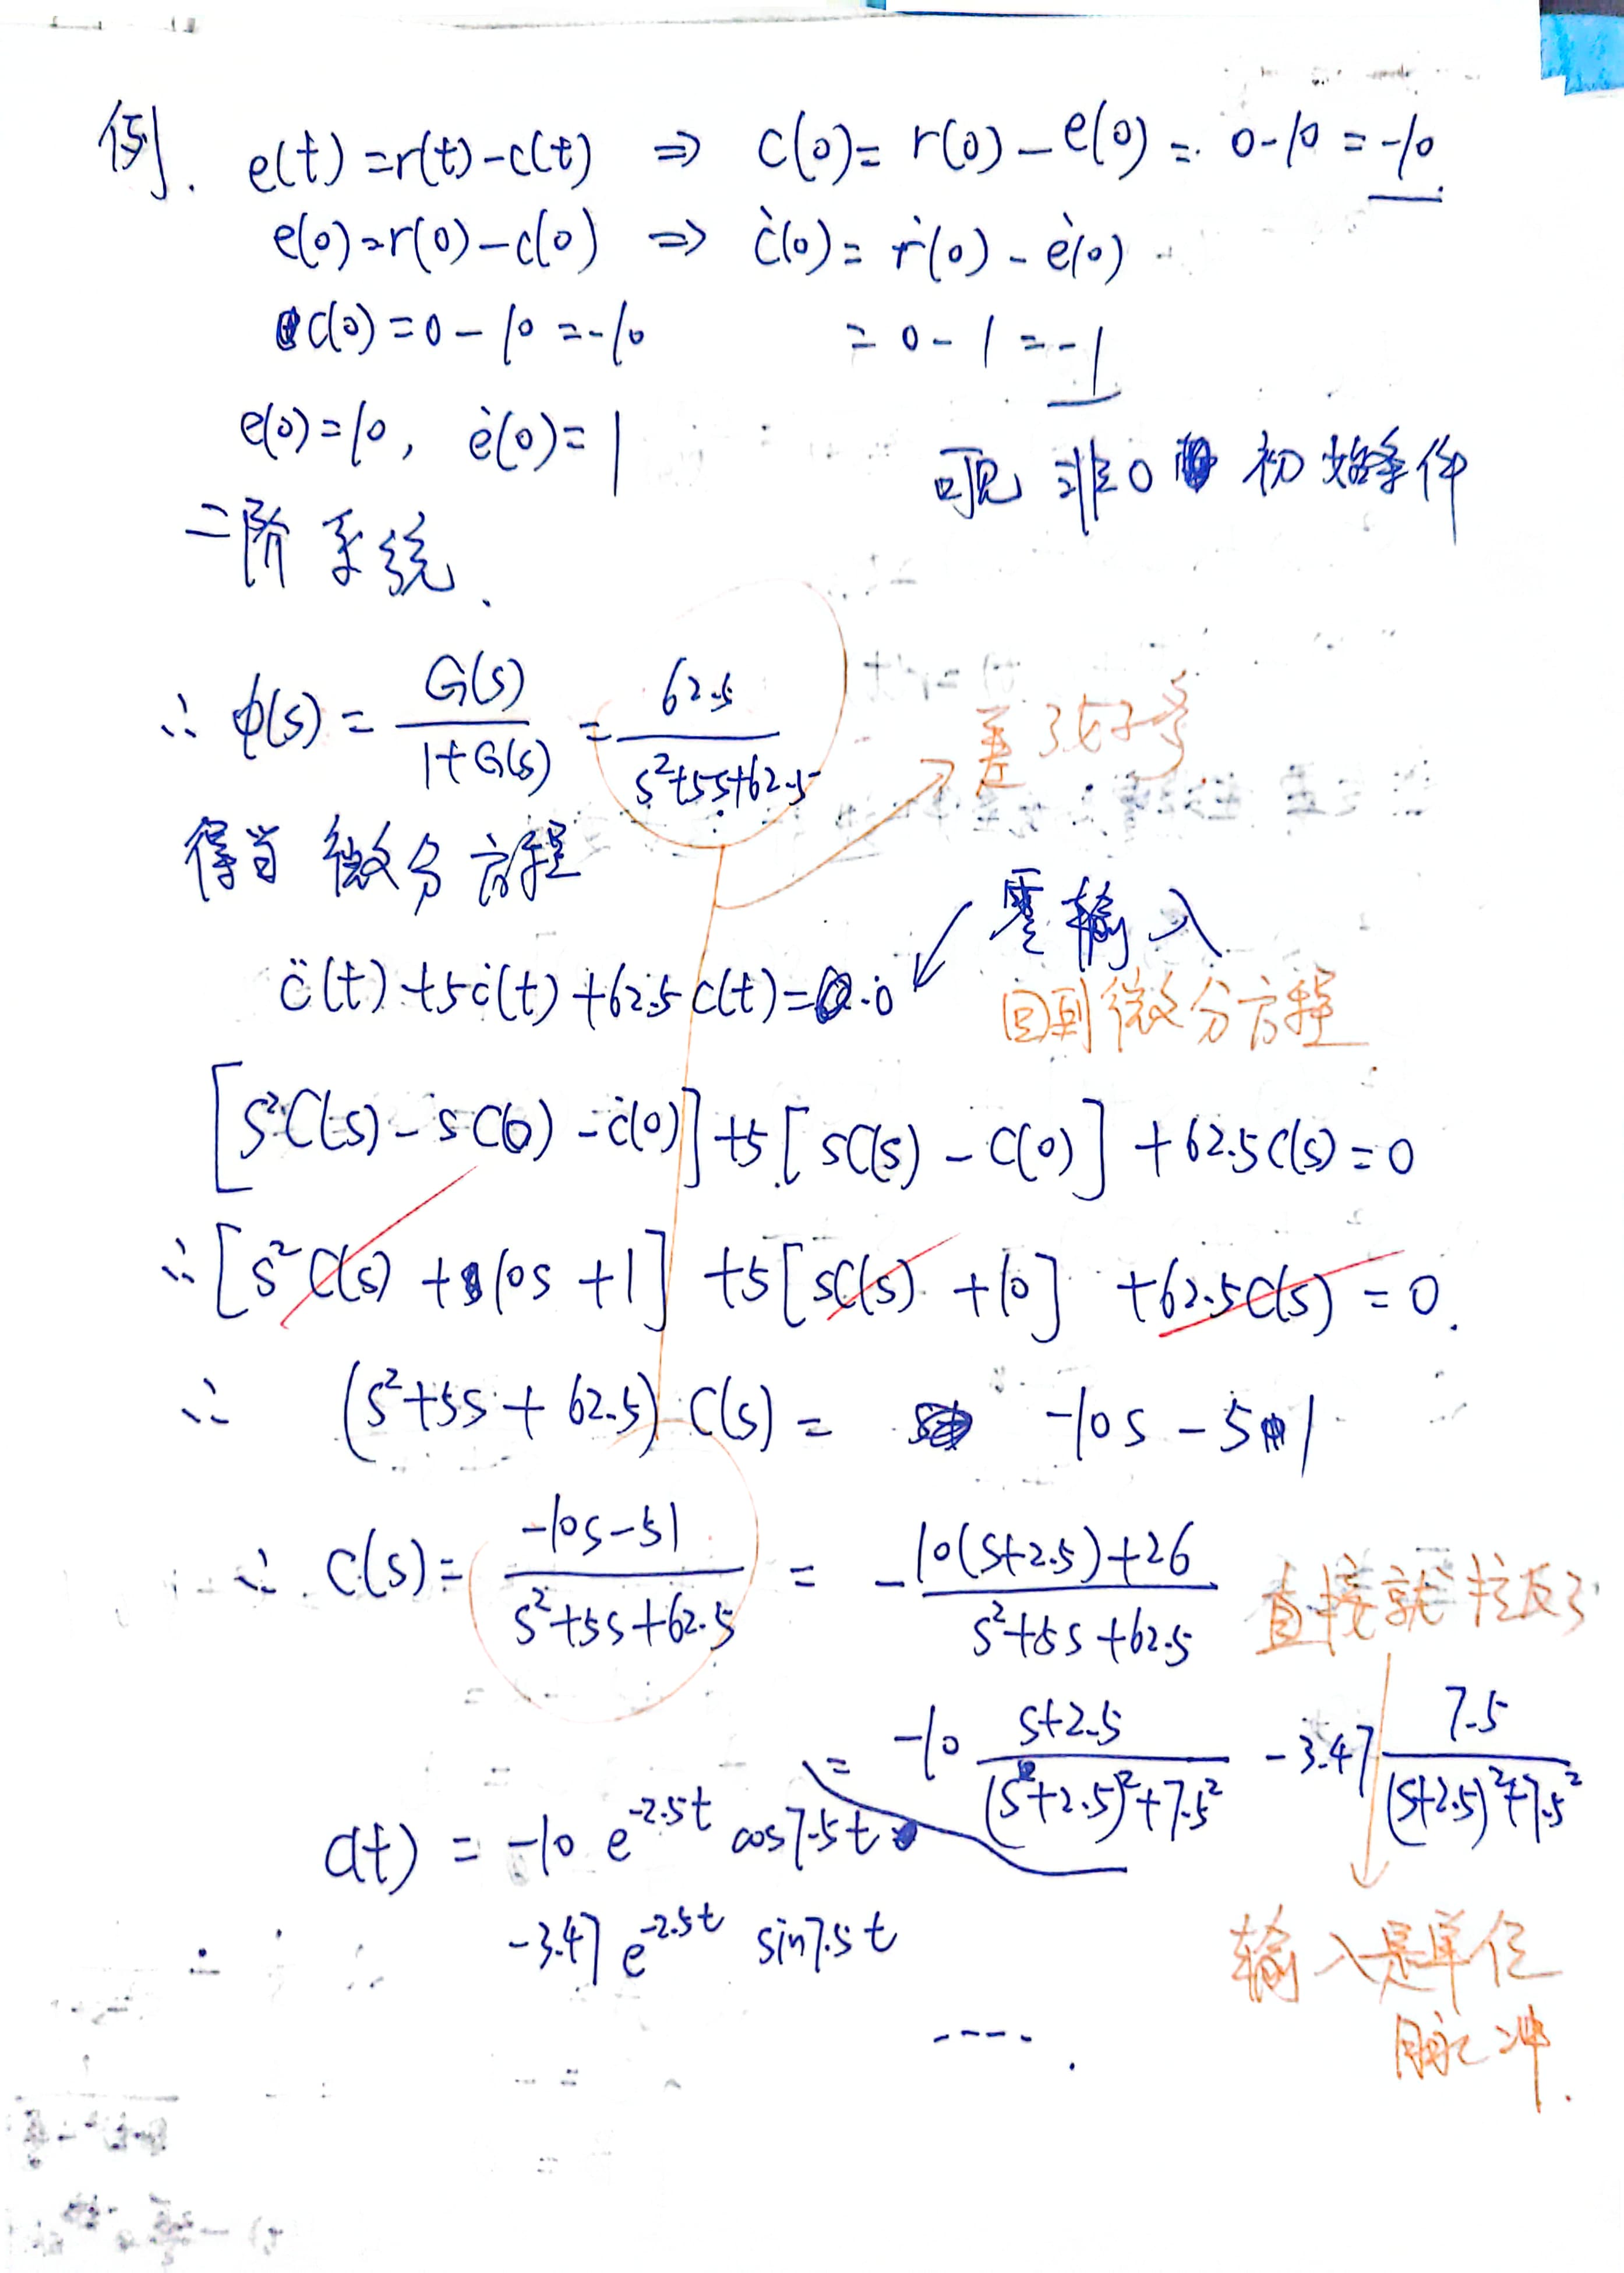 例. e(t)=r(t)-c(t) ⇒ c(0)= r(0)-e(0)= 0-10=-10.
e(0)=r(0)-c(0) ⇒ ċ(0)= ṙ(0)-ė(0)
c(0)=0-10=-10 = 0-1=-1
e(0)=10, ė(0)=1
可见 非0 初始条件
二阶系统.
∴ φ(s)= G(s)/(1+G(s)) = 62.5/(s²+5s+62.5)
差了好多
得当 微分方程
零输入
c̈(t)+5ċ(t)+62.5c(t)=0
回到微分方程
[s²C(s)-sC(0)-ċ(0)]+5[sC(s)-C(0)]+62.5C(s)=0
∴[s²C(s)+10s+1]+5[sC(s)+10]+62.5C(s)=0.
∴ (s²+5s+62.5)C(s)= -10s-51
∴ C(s)= (-10s-51)/(s²+5s+62.5) = -(10(s+2.5)+26)/(s²+5s+62.5)
直接就拉反了
= -10 (s+2.5)/((s+2.5)²+7.5²) -3.47 7.5/((s+2.5)²+7.5²)
c(t) = -10 e^{-2.5t} cos7.5t
-3.47 e^{-2.5t} sin7.5t
输入是单位
脉冲.
----.